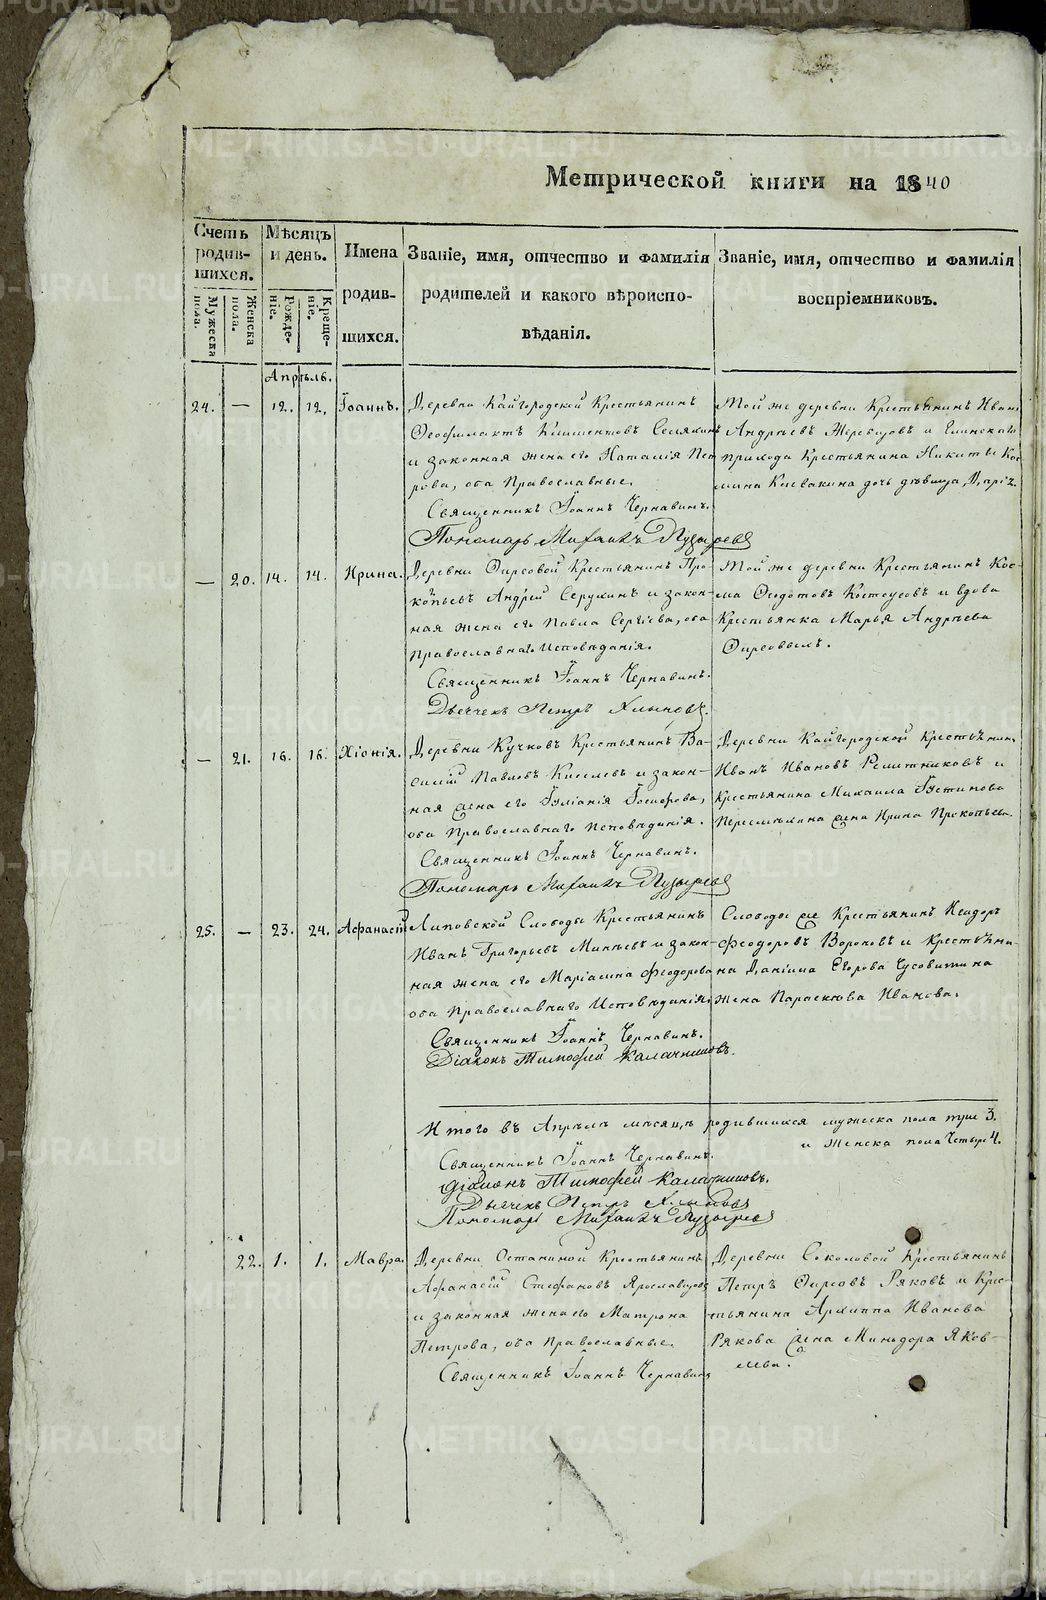 Метрической книги на 1840
Счетъ родив-шихся.
Мѣсяцъ и день.
Имена родив-шихся.
Званіе, имя, отчество и фамилія родителей и какого вѣроиспо-вѣданія.
Званіе, имя, отчество и фамилія воспріемниковъ.
Мужеска пола.
Женска пола.
Рожде-ніе.
Креще-ніе.
Апрѣль.
24. — 12. 12. Іоаннъ.
Деревни Кайгородской Крестьянинъ
Ѳеофилактъ
и законная жена его Наталія Пет
рова, оба Православные.
Священникъ Іоаннъ Чернавинъ.
Пономарь Михаилъ Пузыревъ
Той же деревни Крестьянинъ Иванъ
Андрѣевъ Жеребцовъ и
прихода Крестьянина Никиты Кос
мина дочь дѣвица
— 20. 14. 14. Ирина.
Деревни Ѳирсовой Крестьянинъ Про
копьевъ Андрей и закон-
ная жена его Павла Сергіева, оба
Православнаго Исповѣданія.
Священникъ Іоаннъ Чернавинъ.
Дьячекъ Петръ Хлыновъ.
Той же деревни Крестьянинъ Кос-
ма Ѳедотовъ Костоусовъ и вдова
Крестьянка Марья Андрѣева
— 21. 16. 16. Хіонія.
Деревни Кучковъ Крестьянинъ Ва-
силій Павловъ Киселевъ и закон-
ная жена его Іуліанія Іосифова,
оба Православнаго Исповѣданія.
Священникъ Іоаннъ Чернавинъ.
Пономарь Михаилъ Пузыревъ
Деревни Кайгородской Крестьянинъ
Иванъ Ивановъ Решетниковъ и
Крестьянина Михаила Іустинова
жена Ирина Прокопьева.
25. — 23. 24. Афанасій
Липовской Слободы Крестьянинъ
Иванъ Григорьевъ Минѣевъ и закон-
ная жена его Маріамна Ѳеодорова
оба Православнаго Исповѣданія.
Священникъ Іоаннъ Чернавинъ.
Діаконъ Тимофей Калачниковъ.
Слободы же Крестьянинъ Исидоръ
Ѳеодоровъ Вороновъ и Крестьяни-
на Даніила Егорова Чусовитина
жена Параскева Иванова.
Итого въ Апрѣлѣ мѣсяцѣ родившихся мужеска пола три 3.
и женска пола Четыре 4.
Священникъ Іоаннъ Чернавинъ.
Діаконъ Тимофей Калачниковъ.
Дьячекъ Петръ Хлыновъ
Пономарь Михаилъ Пузыревъ
22. 1. 1. Мавра.
Деревни Останиной Крестьянинъ
Афанасій Стефановъ Ярославцовъ
и законная жена его Матрона
Петрова, оба Православные.
Священникъ Іоаннъ Чернавинъ
Деревни Соколовой Крестьянинъ
Петръ Ѳирсовъ Ряковъ и Крес-
тьянина Архиппа Иванова
Рякова жена Минодора Яков-
лева.
METRIKI.GASO-URAL.RU